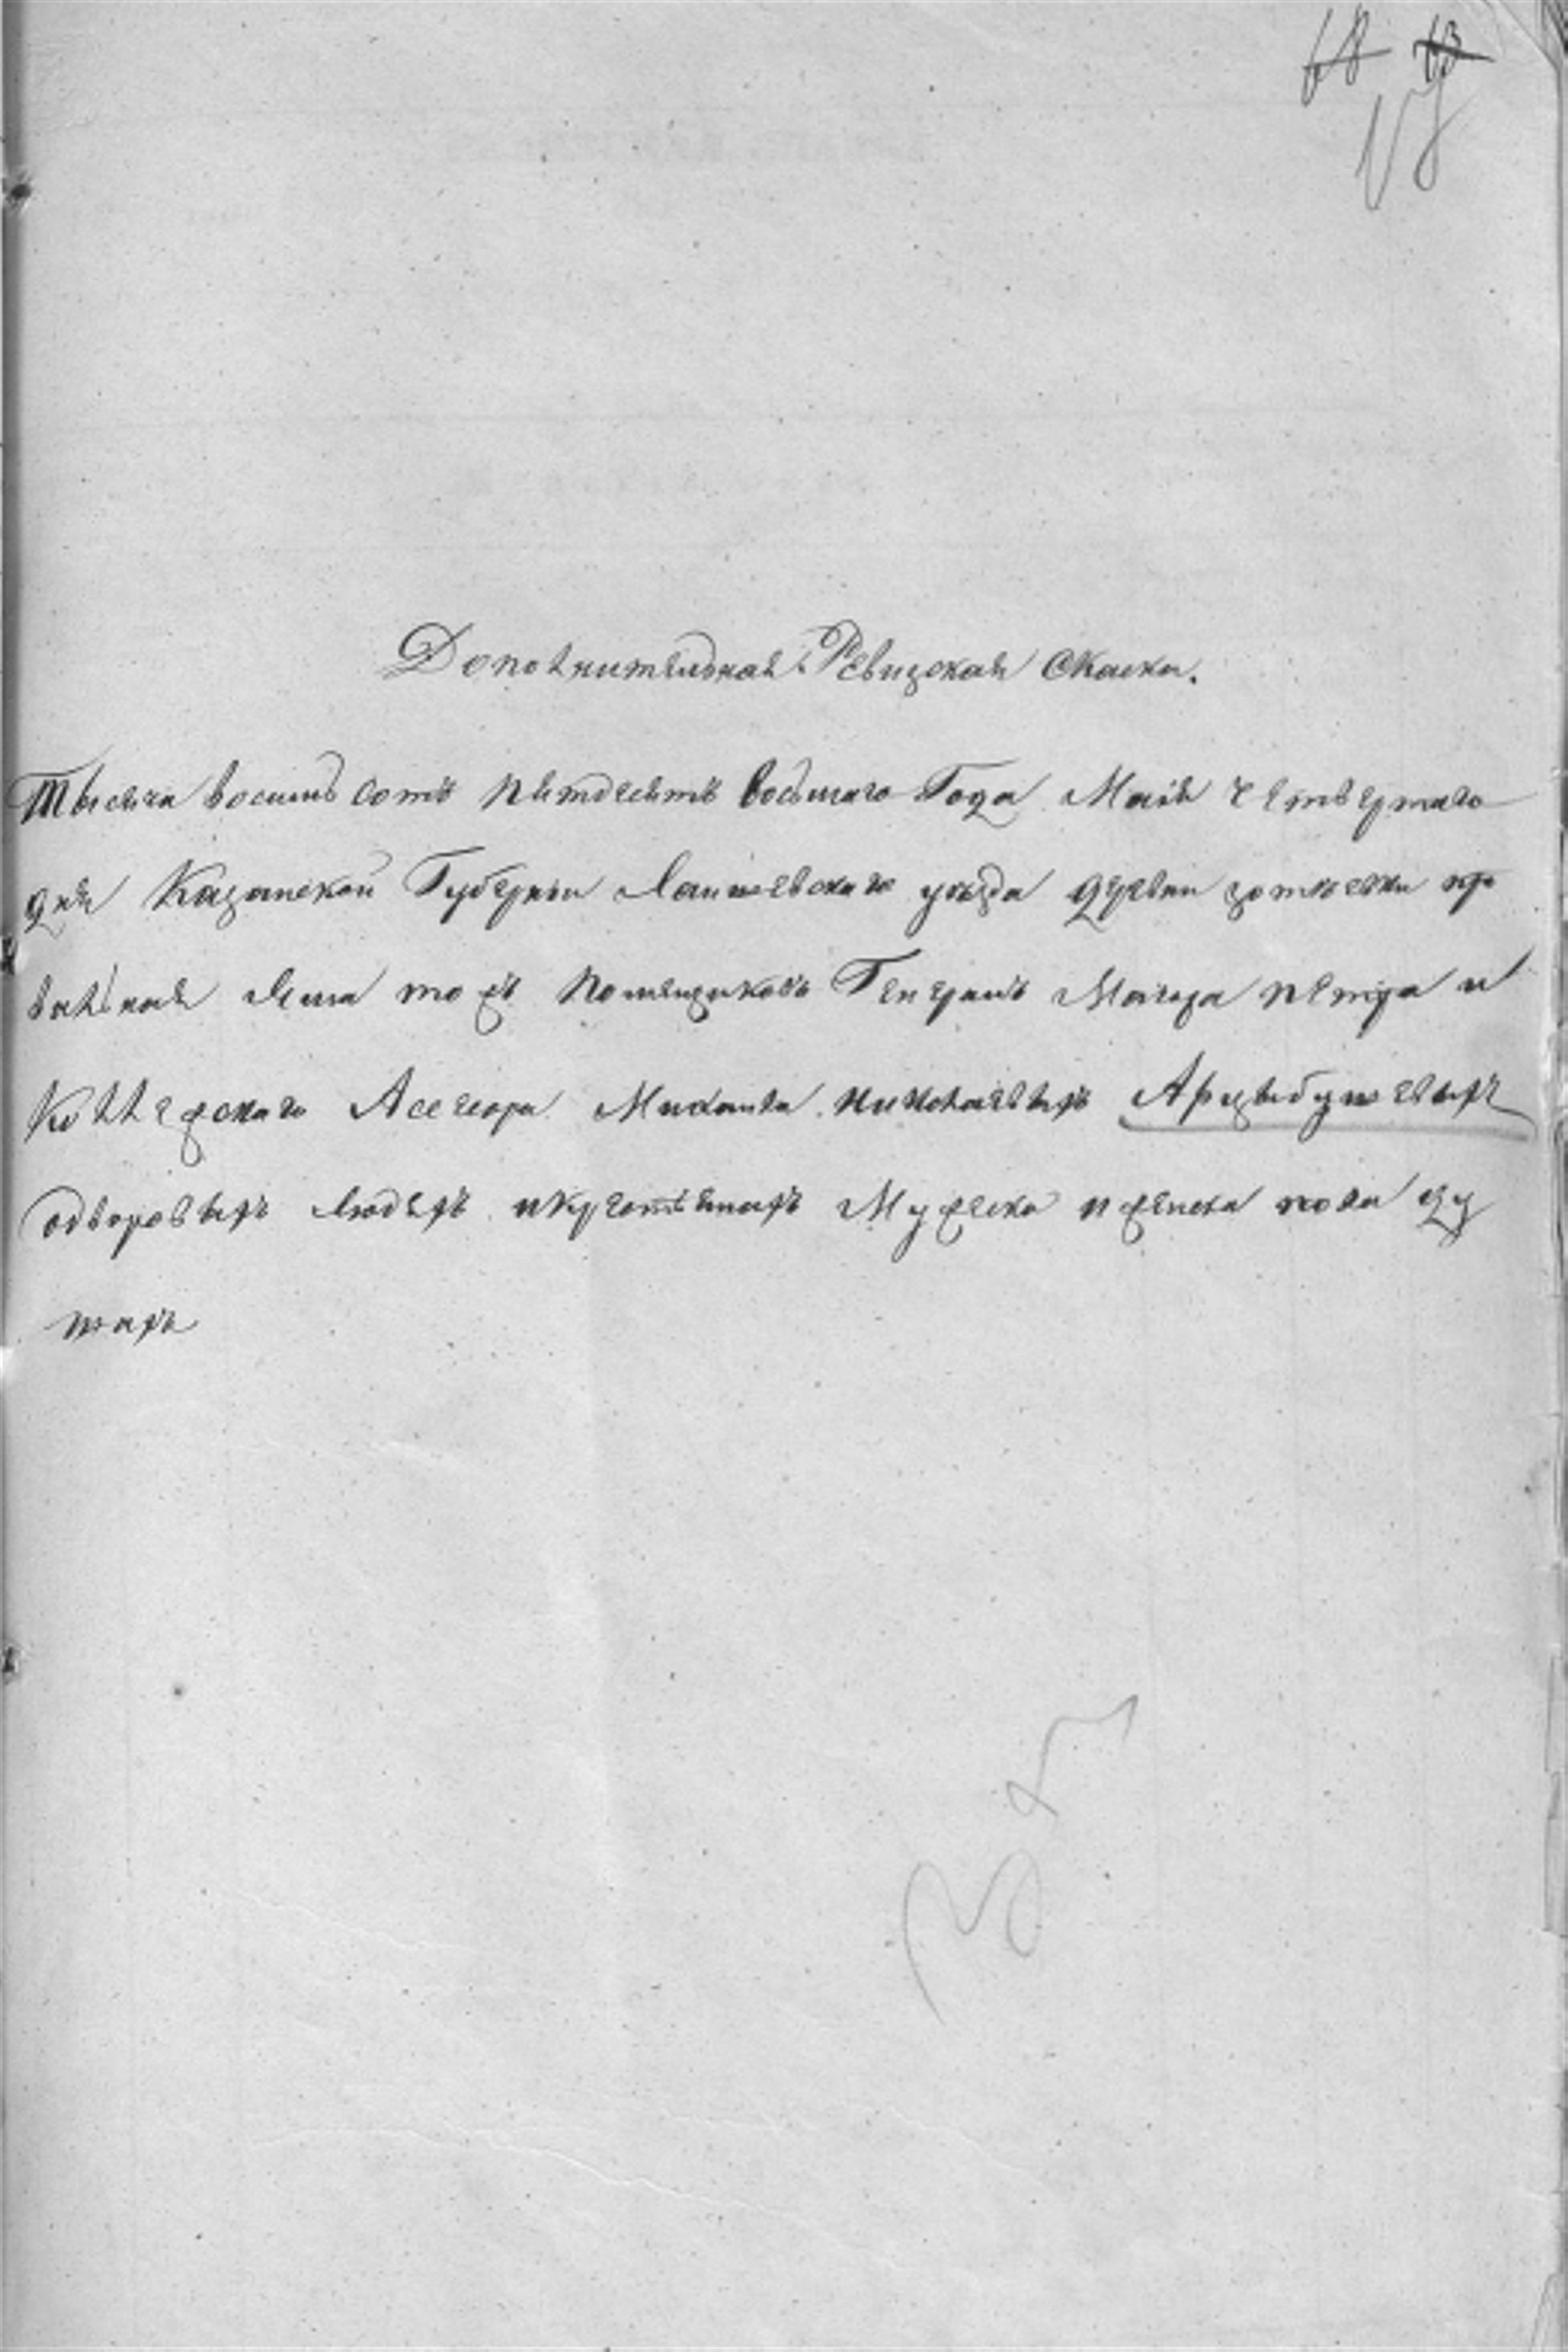 Дополнительная Ревизская Скаска.
Тысеча восимь сотъ петдесетъ восьмаго Года Маія четвертаго
дня Казанской Губерніи Лаишевскаго уезда деревни зотеевки пр
Мша тожъ помещиковъ Генералъ Маиора петра и
Коллежскаго Асесора Михаила николаевыхъ Арцыбушевыхъ
одворовыхъ людехъ икрестьянахъ Мужеска иженска пола ду
шахъ